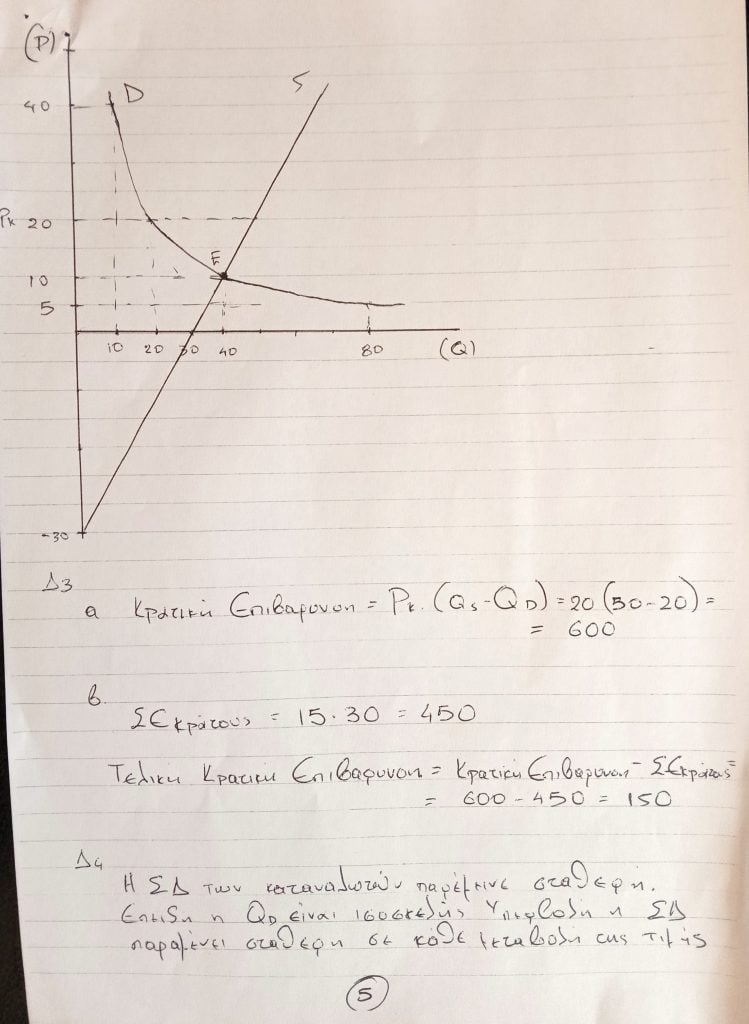 (P)
D
S
40
Pκ 20
E
10
5
10 20 30 40 80 (Q)
-30
Δ3
α Κρατική Επιβάρυνση = Pκ. (QS - QD) = 20 (50-20) =
= 600
β.
ΣΕκράτους = 15 · 30 = 450
Τελική Κρατική Επιβάρυνση = Κρατική Επιβάρυνση - ΣΕκράτους =
= 600 - 450 = 150
Δ4
Η ΣΔ των καταναλωτών παρέμεινε σταθερή.
Επειδή η QD είναι ισοσκελής Υπερβολή η ΣΔ
παραμένει σταθερή σε κάθε μεταβολή της τιμής
5